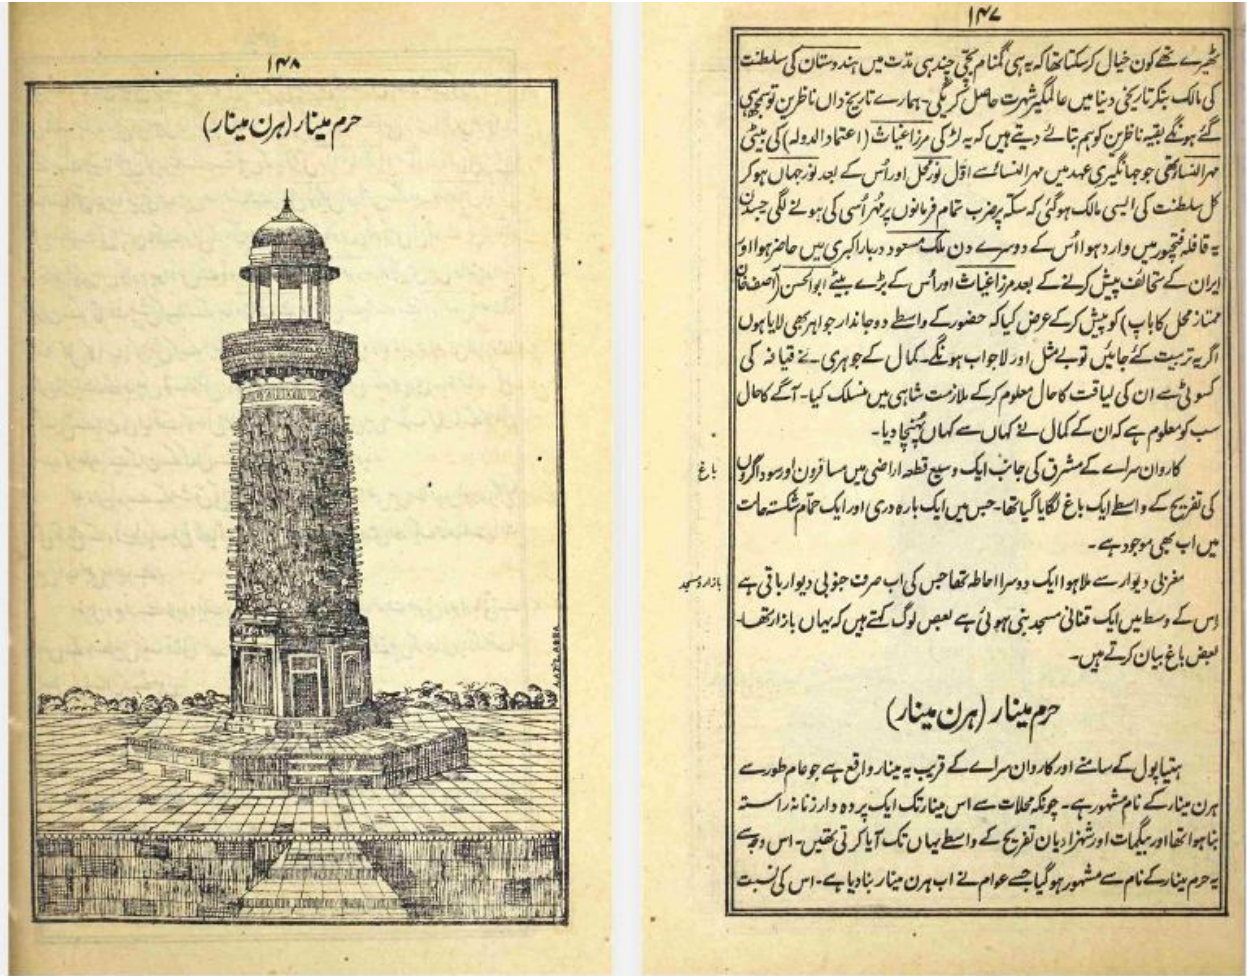 ۱۴۷
ٹھیرے تھے کون خیال کرسکتا تھا کہ یہ ہی گمنام بچّی چند ہی مدّت میں ہندوستان کی سلطنت
کی مالک بنکر تاریخی دنیا میں عالمگیر شہرت حاصل کریگی۔ ہمارے تاریخ داں ناظرین تو سمجھ ہی
گئے ہونگے بقیہ ناظرین کو ہم بتائے دیتے ہیں کہ یہ لڑکی مرزا غیاث (اعتماد الدولہ) کی بیٹی
مہر النساء تھی جو جہانگیری عہد میں مہر النساء سے اوّل نور محل اور اُس کے بعد نور جہاں ہوکر
کل سلطنت کی ایسی مالک ہوگئی کہ سکّہ پر ضرب تمام فرمانوں پر مُہر اُسی کی ہونے لگی جسدن
یہ قافلہ فتحپور میں وارد ہوا اُس کے دوسرے دن ملک مسعود دربار اکبری میں حاضر ہوا اور
ایران کے تحائف پیش کرنے کے بعد مرزا غیاث اور اُس کے بڑے بیٹے ابوالحسن (آصف خان
ممتاز محل کا باپ) کو پیش کرکے عرض کیا کہ حضور کے واسطے دو جاندار جواہر بھی لایا ہوں
اگر یہ تربیت کئے جائیں تو بے مثل اور لاجواب ہونگے۔ کمال کے جوہری نے قیافہ کی
کسوٹی سے ان کی لیاقت کا حال معلوم کرکے ملازمت شاہی میں منسلک کیا۔ آگے کا حال
سب کو معلوم ہے کہ ان کے کمال نے کہاں سے کہاں پہُنچا دیا۔
باغ
کارواں سراے کے مشرق کی جانب ایک وسیع قطعہ اراضی میں مسافروں اور سوداگروں
کی تفریح کے واسطے ایک باغ لگایا گیا تھا۔ جس میں ایک بارہ دری اور ایک حمّام شکستہ حالت
میں اب بھی موجود ہے۔
بازار و مسجد
مغربی دیوار سے ملا ہوا ایک دوسرا احاطہ تھا جس کی اب صرف جنوبی دیوار باقی ہے
اِس کے وسط میں ایک قناتی مسجد بنی ہوئی ہے بعض لوگ کہتے ہیں کہ یہاں بازار تھا۔
بعض باغ بیان کرتے ہیں۔
حرم مینار (ہرن مینار)
ہتیاپول کے سامنے اور کارواں سراے کے قریب یہ مینار واقع ہے جو عام طور سے
ہرن مینار کے نام مشہور ہے۔ چونکہ محلات سے اس مینار تک ایک پردہ دار زنانہ راستہ
بنا ہوا تھا اور بیگمات اور شہزادیاں تفریح کے واسطے یہاں تک آیا کرتی تھیں۔ اس وجہ سے
یہ حرم مینار کے نام سے مشہور ہوگیا جسے عوام نے اب ہرن مینار بنا دیا ہے۔ اس کی نسبت
۱۴۸
حرم مینار (ہرن مینار)